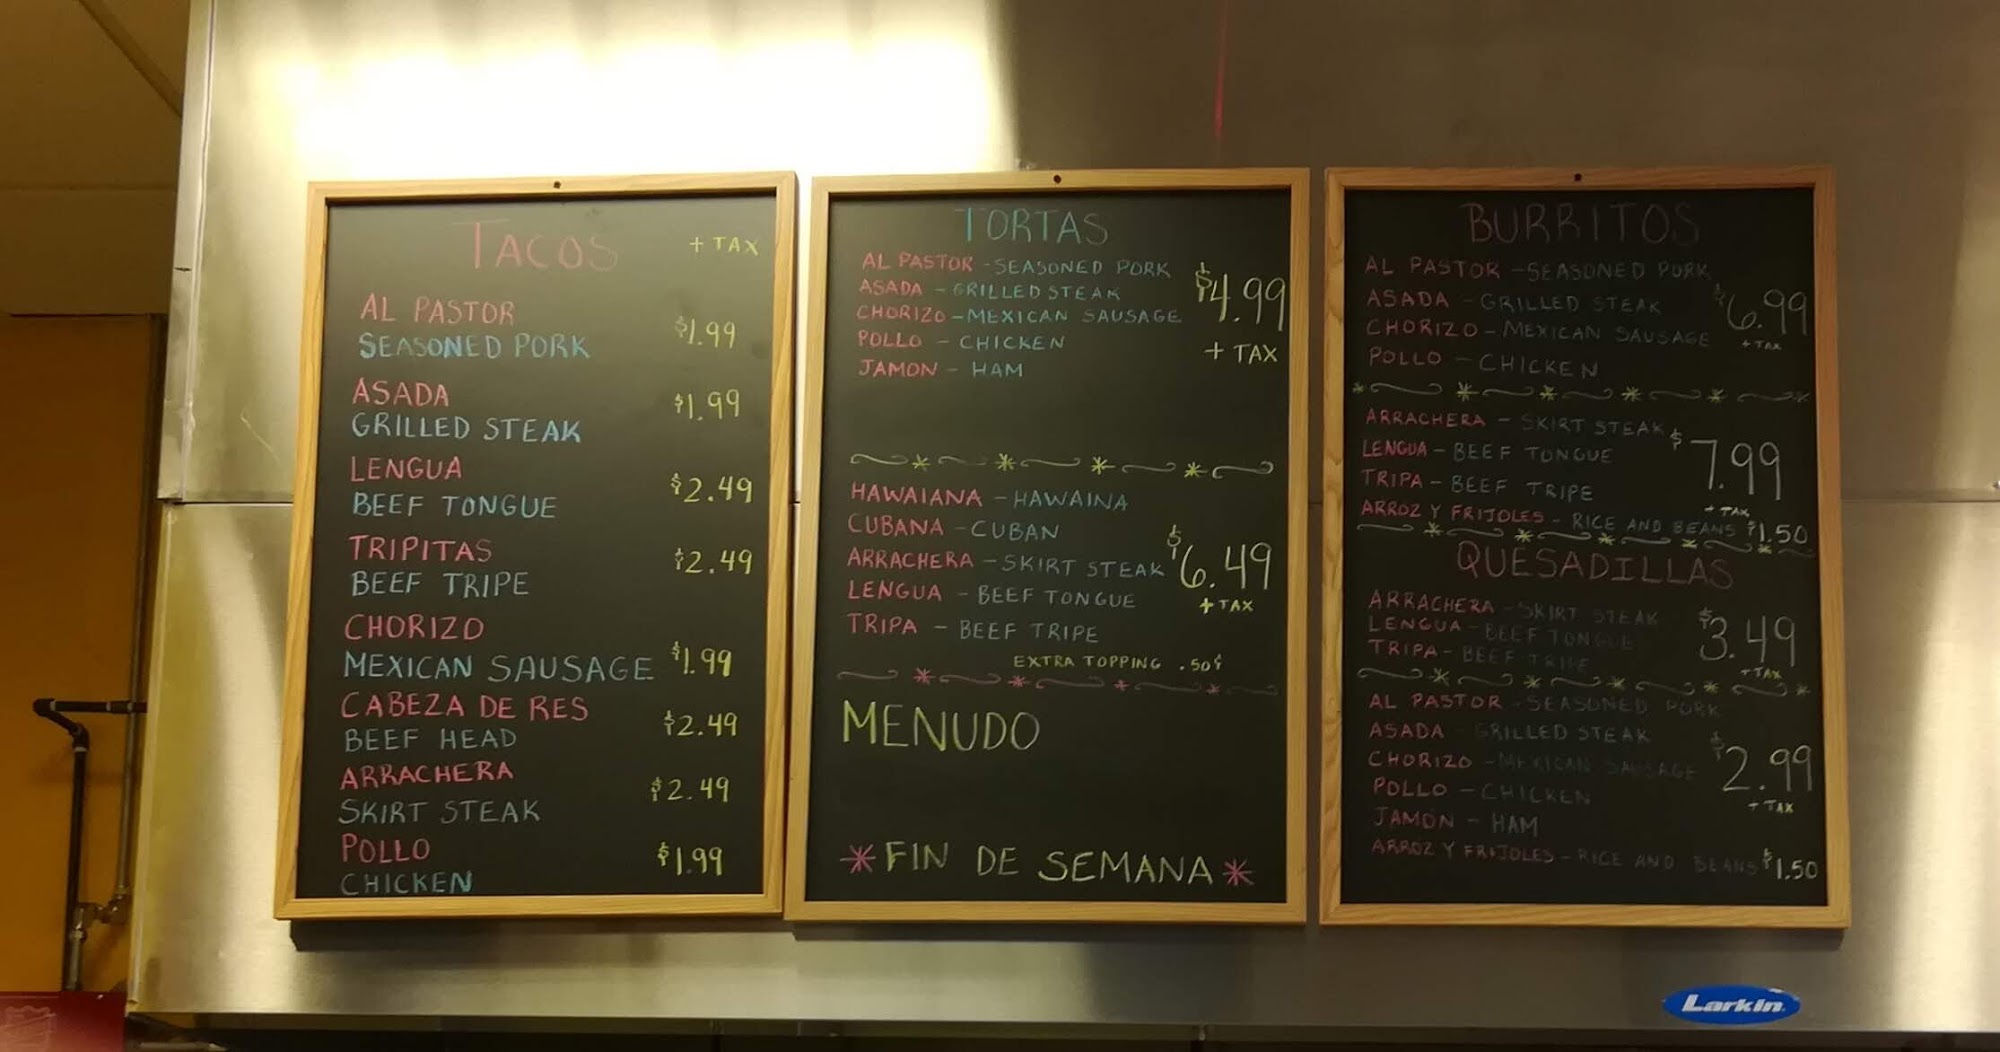 TACOS + TAX
AL PASTOR
SEASONED PORK $1.99
ASADA
GRILLED STEAK $1.99
LENGUA
BEEF TONGUE $2.49
TRIPITAS
BEEF TRIPE $2.49
CHORIZO
MEXICAN SAUSAGE $1.99
CABEZA DE RES
BEEF HEAD $2.49
ARRACHERA
SKIRT STEAK $2.49
POLLO
CHICKEN $1.99
TORTAS
AL PASTOR - SEASONED PORK
ASADA - GRILLED STEAK $4.99
CHORIZO - MEXICAN SAUSAGE
POLLO - CHICKEN + TAX
JAMON - HAM
HAWAIANA - HAWAINA
CUBANA - CUBAN
ARRACHERA - SKIRT STEAK $6.49
LENGUA - BEEF TONGUE + TAX
TRIPA - BEEF TRIPE
EXTRA TOPPING .50¢
MENUDO
*FIN DE SEMANA*
BURRITOS
AL PASTOR - SEASONED PORK
ASADA - GRILLED STEAK $6.99
CHORIZO - MEXICAN SAUSAGE + TAX
POLLO - CHICKEN
ARRACHERA - SKIRT STEAK
LENGUA - BEEF TONGUE $7.99
TRIPA - BEEF TRIPE + TAX
ARROZ Y FRIJOLES - RICE AND BEANS $1.50
QUESADILLAS
ARRACHERA - SKIRT STEAK
LENGUA - BEEF TONGUE $3.49
TRIPA - BEEF TRIPE + TAX
AL PASTOR - SEASONED PORK
ASADA - GRILLED STEAK
CHORIZO - MEXICAN SAUSAGE $2.99
POLLO - CHICKEN + TAX
JAMON - HAM
ARROZ Y FRIJOLES - RICE AND BEANS $1.50
Larkin